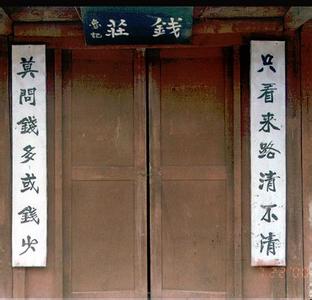 錢莊
只看来路清不清
莫問錢多或錢少